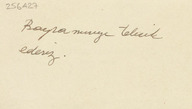 256A27
Bayramınızı tebrik
ederiz.